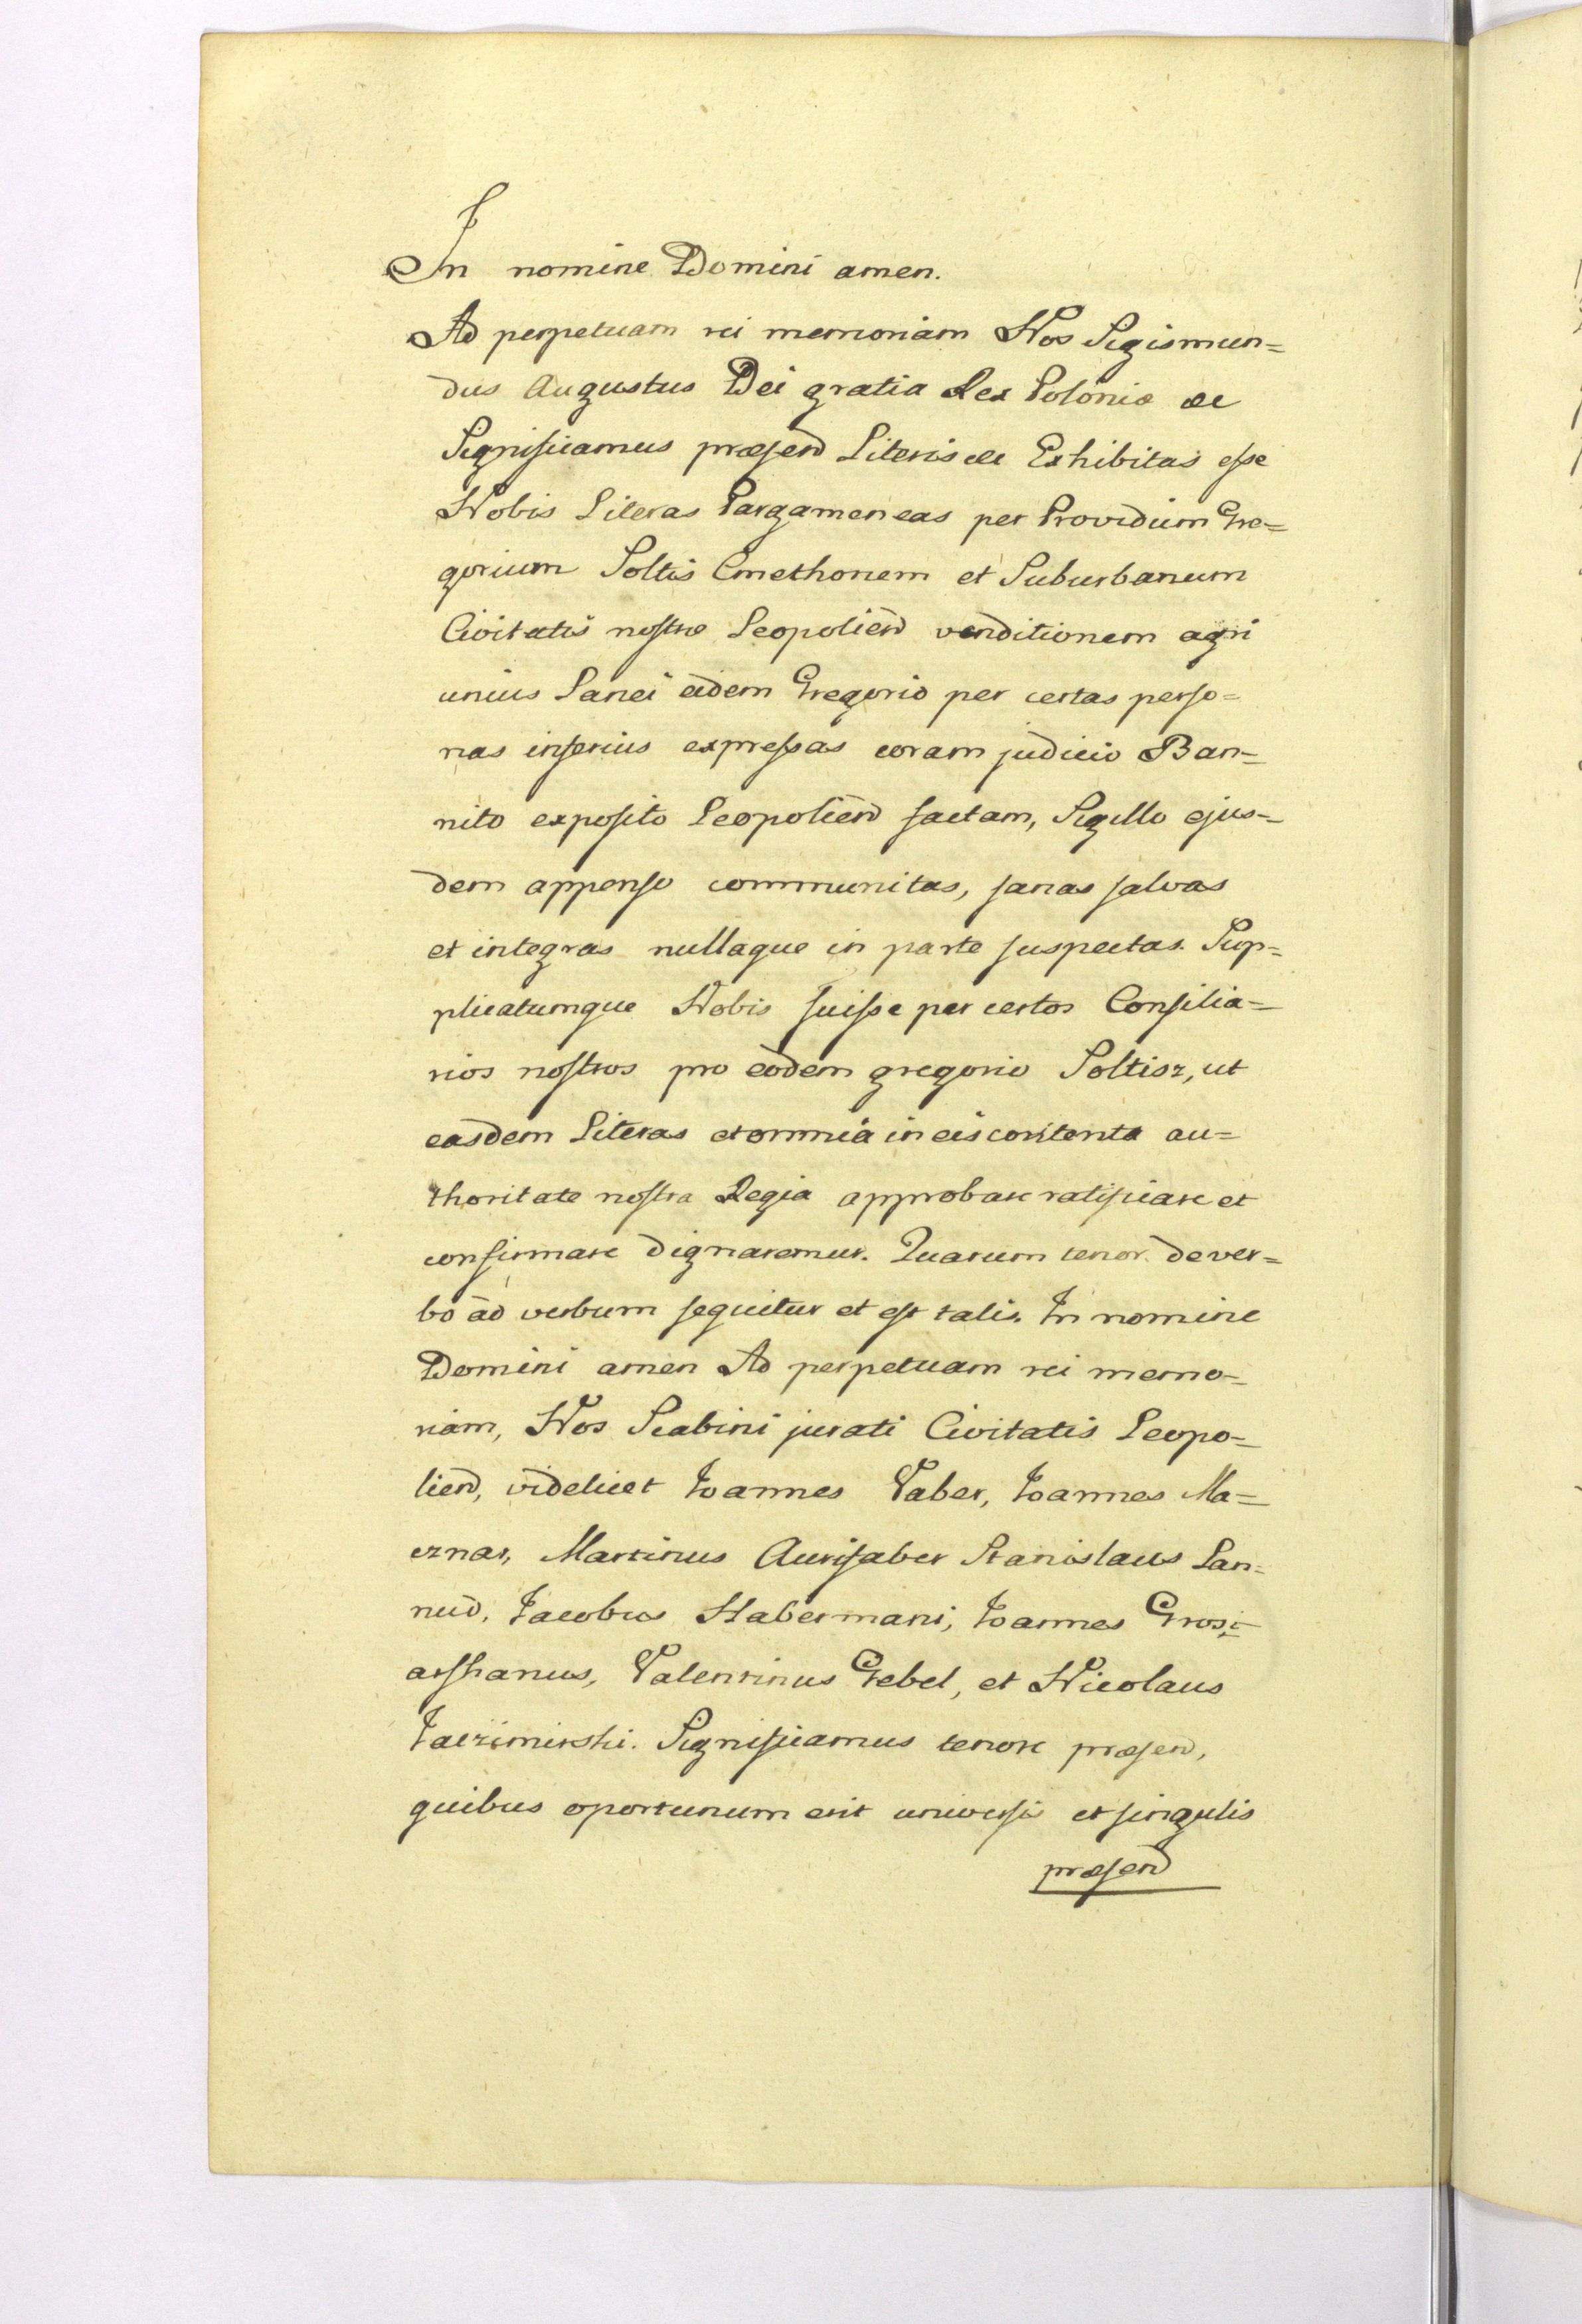 In nomine Domini amen.
Ad perpetuam rei memoriam Nos Sigismun=
dus Augustus Dei gratia Rex Poloniæ &c
Significamus præsend Literis &c Exhibitas esse
Nobis Literas Pargameneas per Providum Gre=
gorium Soltis Cmethonem et Suburbanum
Civitatis nostræ Leopoliend venditionem agri
unius Lanei eidem Gregorio per certas perso=
nas inferius expressas coram judicio Ban=
nito exposito Leopoliend factam, Sigillo ejus=
dem appenso communitas, sanas salvas
et integras nullaque in parte suspectas. Sup=
plicatumque Nobis fuisse per certos Consilia=
rios nostros pro eodem gregorio Soltisz, ut
easdem Literas et omnia in eis contenta au=
thoritate nostra Regia approbare ratificare et
confirmare dignaremur. Quarum tenor de ver=
bo ad verbum sequitur et est talis. In nomine
Domini amen Ad perpetuam rei memo=
riam, Nos Scabini jurati Civitatis Leopo=
liend, videlicet Joannes Faber, Joannes Ma=
cznar, Martinus Aurifaber Stanislaus Lan=
nud, Jacobus Habermani, Joannes Gros;=
Valentinus Grebel, et Nicolaus
Jaczimirski. Significamus tenore præsend,
quibus oportunum erit universis et singulis
præsend